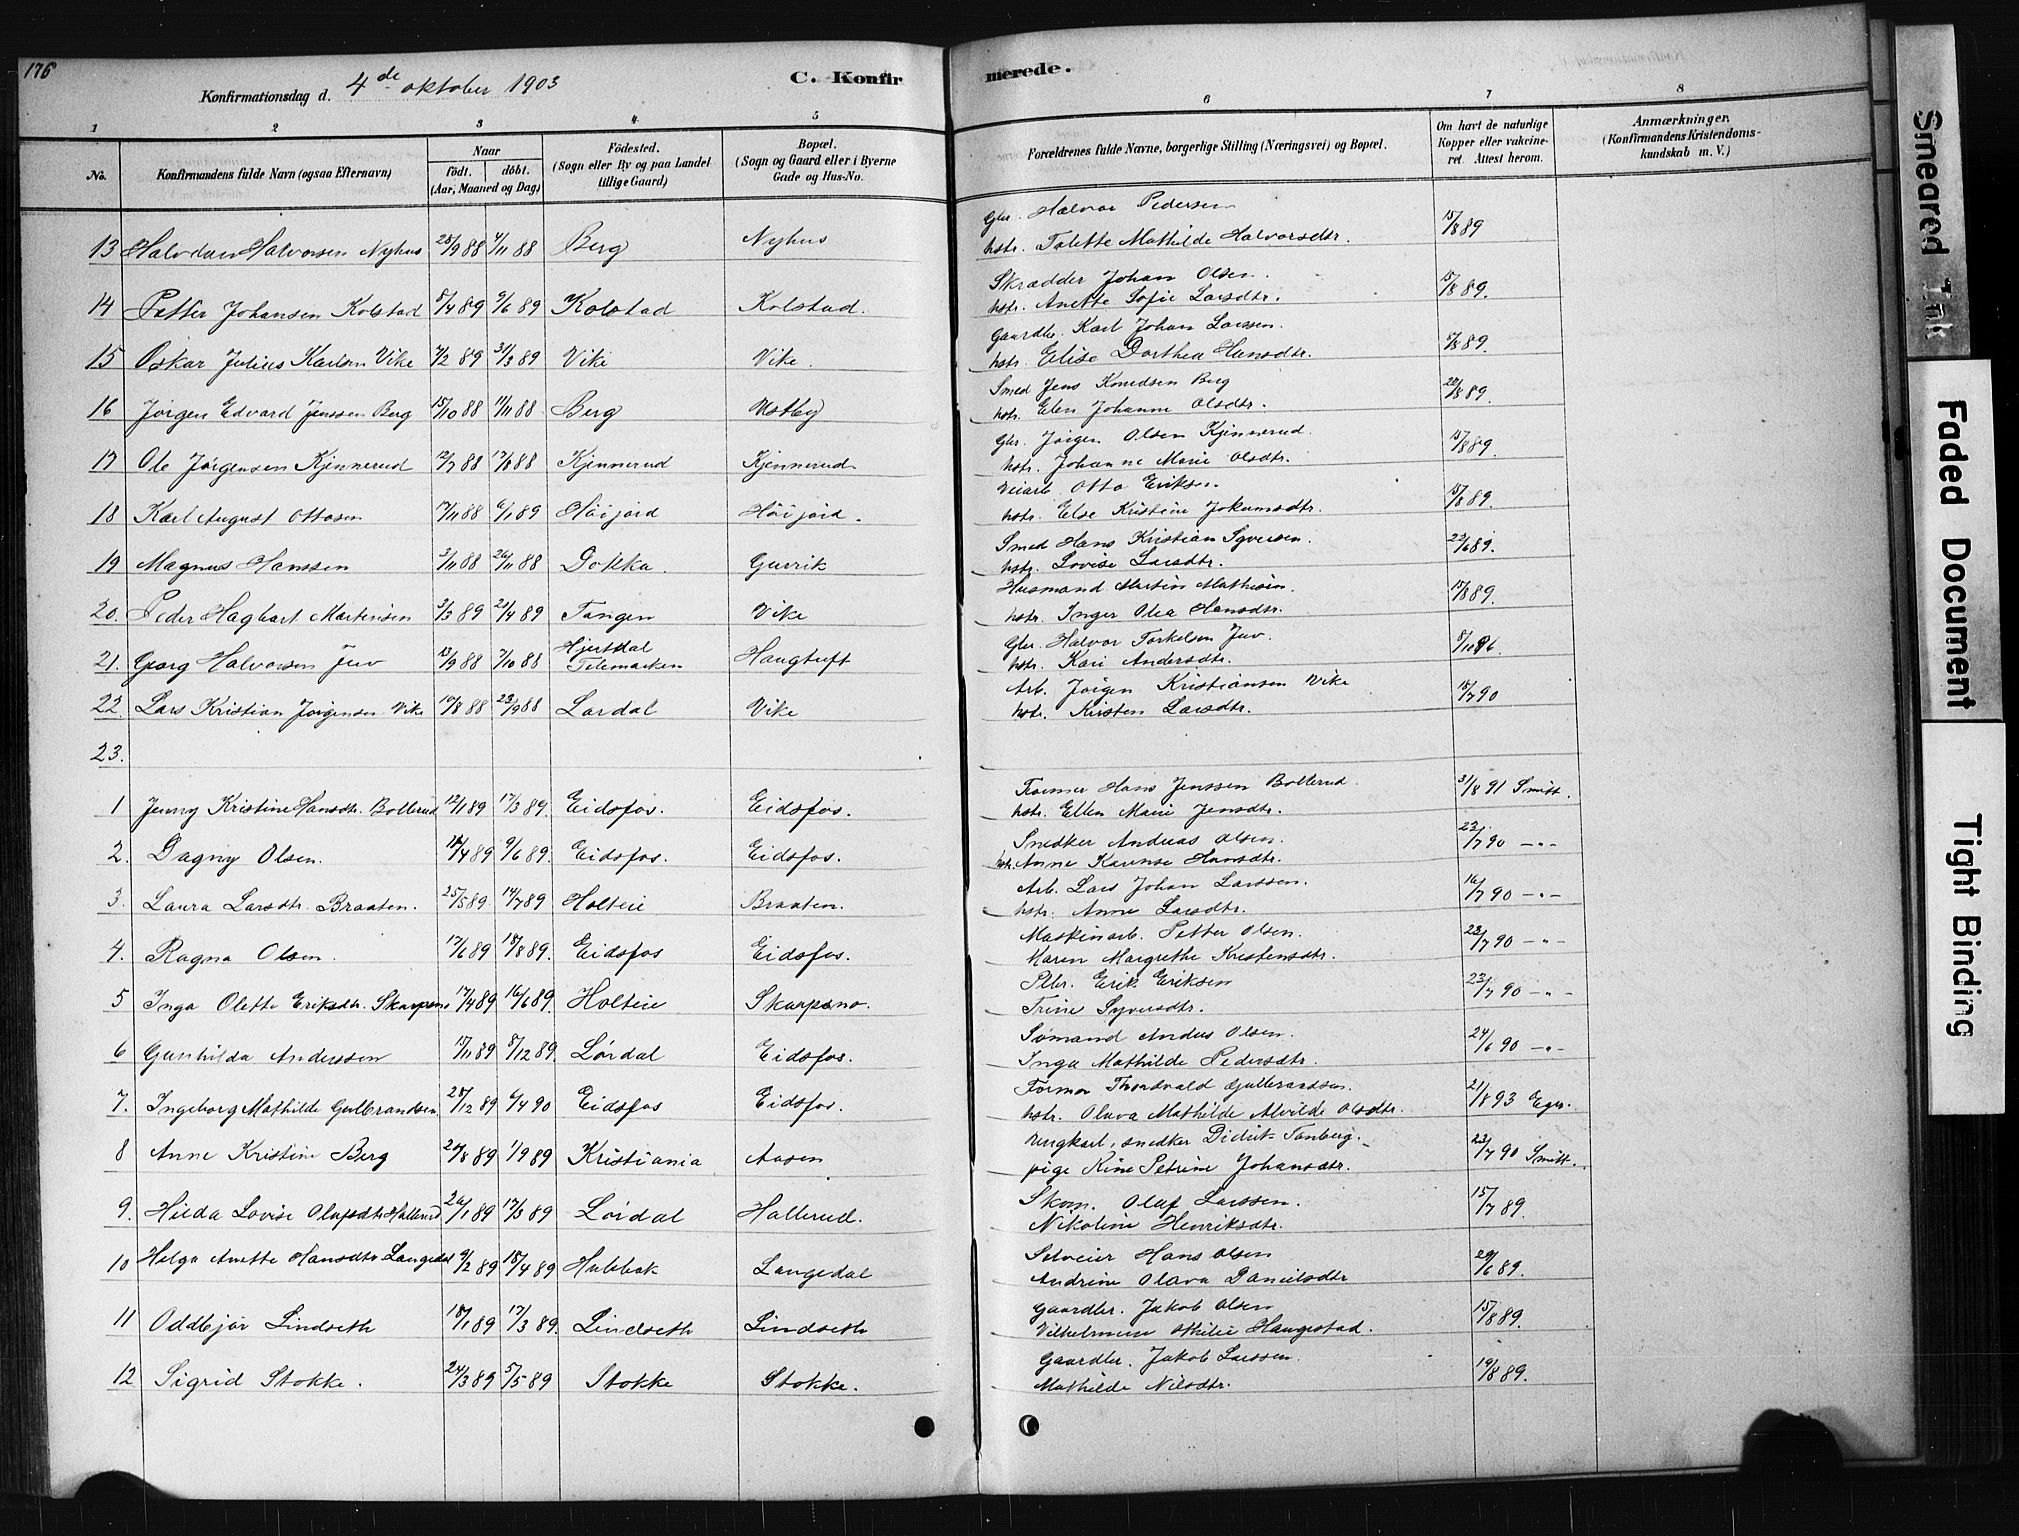 176
Konfirmationsdag d. 4de oktober 1903
C. Konfirmerede.
1 2 3 4 5 6 7 8
No. Konfirmandens fulde Navn (ogsaa Efternavn) Naar födt. döbt. (Aar, Maaned og Dag) Födested. (Sogn eller By og paa Landet tillige Gaard) Bopæl. (Sogn og Gaard eller i Byerne Gade og Hus-No. Forældrenes fulde Navne, borgerlige Stilling (Næringsvei) og Bopæl. Om havt de naturlige Kopper eller vakcineret. Attest herom. Anmærkninger. (Konfirmandens Kristendomskundskab m. V.)
13 Halvdan Halvorsen Nyhus 28/9 88 4/11 88 Berg Nyhus Gbr. Halvor Pedersen 15/8 89
hstr. Talette Mathilde Halvorsdtr.
14 Petter Johansen Kolstad 8/4 89 9/6 89 Kolstad Kolstad. Skrædder Johan Olsen. 15/8 89.
hstr. Anette Sofie Larsdtr.
15 Oskar Julius Karlsen Vike 4/2 89 31/3 89 Vike Vike. Gaardbr. Karl Johan Larssen. 89.
hstr. Elise Dorthea Hansdtr.
16 Jørgen Edvard Jenssen Berg 15/10 88 11/11 88 Berg Vestby Smed Jens Knudsen Berg 22/8 89.
hstr. Elen Johanne Olsdtr.
17 Ole Jørgensen Kjennerud 12/7 88 88 Kjennerud Kjennerud Gbr. Jørgen Olsen Kjennerud. 15/8 89.
hstr. Johanne Marie Olsdtr.
18 Karl August Ottosen 17/11 88 6/1 89 Höijord Höijord. Veiarb. Otto Eriksen. 15/8 89.
hstr. Else Kristine Jokumsdtr.
19 Magnus Hanssen 3/11 88 26/11 88 Dokka. Gurrik Smed Hans Kristian Syversen. 23/6 89.
hstr. Lovise Larsdtr.
20. Peder Hagbart Martinsen 3/3 89 21/4 89 Tangen Vike Husmand Martin Mathisen. 15/8 89.
hstr. Inger Olea Hansdtr.
21. Georg Halvorsen Juv 13/9 88 7/10 88 Hjertdal Telemarken Haugtuft Gbr. Halvor Torkelsen Juv. 8/10 96.
hstr. Kari Andersdtr.
22. Lars Kristian Jørgensen Vike 19/8 88 23/9 88 Lardal Vike Arb. Jørgen Kristiansen Vike 15/7 90
hstr. Kirsten Larsdtr.
23.
1 Jenny Kristine Hansdtr. Bollerud 12/1 89 17/3 89. Eidsfos. Eidsfos. Former Hans Jenssen Bollerud. 31/8 91 Smitt.
hstr. Ellen Marie Jensdtr.
2. Dagny Olsen. 18/4 89 9/6 89. Eidsfos. Eidsfos. Snedker Andreas Olsen. 23/7 90 –„–
hstr. Anne Karense Hansdtr.
3. Laura Larsdtr. Braaten. 25/5 89. 14/7 89 Holteie Braaten. Arb. Lars Johan Larssen. 16/7 90 –„–
hstr. Anne Larsdtr.
4. Ragna Olsen. 17/6 89 18/8 89. Eidsfos Eidsfos. Maskinarb. Petter Olsen. 23/7 90 –„–
Maren Margrethe Kristensdtr.
5 Inga Olette Eriksdtr. Skarpsno 17/4 89 16/6 89. Holteie Skarpsno. Pbr. Erik Eriksen 23/7 90 –„–
Trine Syversdtr.
6 Gunhilda Anderssen 15/11 89 8/12 89. Lördal Eidsfos. Sömand Anders Olsen. 24/6 90 –„–
Inga Mathilde Pedersdtr.
7. Ingeborg Mathilde Gulbrandsen. 28/12 89 6/4 90 Eidsfos Eidsfos. Former Thordvald Gulbrandsen. 21/8 93 Eger.
hstr. Olava Mathilde Alvilde Olsdtr.
8 Anne Kristine Berg 89 1/9 89 Kristiania Aasen Ungkarl, snedker Didrik Tanberg. 23/7 90 Smitt.
pige Rine Petrine Johansdtr.
9. Hilda Lovise Olafsdtr Hallerud 26/1 89 17/3 89 Lördal Hallerud. Skom. Olaf Larssen. 15/7 89.
Nikoline Henriksdtr.
10 Helga Anette Hansdtr. Langedal 9/2 89 18/4 89 Hulbak Langedal Selveier Hans Olsen 29/6 89.
Andrine Olava Danielsdtr
11 Oddbjør Lindseth 18/1 89 17/3 89. Lindseth Lindseth Gaardbr. Jakob Olsen 15/8 89.
Vilhelmine Othilie Haugestad.
12 Sigrid Stokke. 24/3 89 5/5 89 Stokke Stokke. Gaardbr. Jakob Larssen. 19/8 89.
Mathilde Nilsdtr.
Smeared Ink
Faded Document
Tight Binding